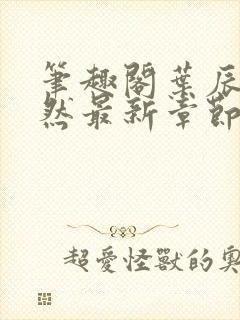 筆趣閣葉辰
然最新章節
超愛怪獸的奧